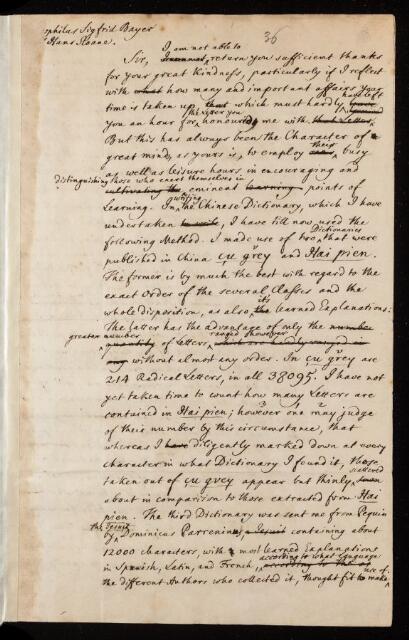 ophilus Sigfrid Bayer
Hans Sloane.
36
I am not able to
Sir, return you sufficient thanks
for your great Kindness, particularly if I reflect
with what how many and important affairs your
time is taken up, that which must hardly have left
the paper you
you an hour for honouring me with that Letter.
But this has always been the Character of a
great mind, as yours is, to employ their busy
as well as leisure hours in encouraging and
distinguishing those who exert themselves in
cultivating the eminent learning points of
Learning. In the Chinese Dictionary, which I have
undertaken to write, I have till now used the
Dictionaries
following Method. I made use of two that were
published in China çu gvey and Hai pien.
The former is by much the best with regard to the
exact Order of the several Classes and the
its
whole disposition, as also, the learned Explanations:
The latter has the advantage of only the number
greater number ranged however
quantity of Letters, which are hardly ranged in
any without almost any order. In çu gvey are
214 Radical Letters, in all 38095. I have not
yet taken time to count how many Letters are
contained in Hai pien; however one may judge
of their number by this circumstance, that
whereas I have diligently marked down at every
Character in what Dictionary I found it, those
scattered
taken out of çu gvey appear but thinly sown
about in comparison to those extracted from Hai
pien. The third Dictionary was sent me from Pequin
the Jesuit
by Dominicus Parrenin, a Jesuit containing about
12000 characters, with a most learned Explanations
according to what language
in Spanish, Latin, and French, according to the as
use of.
the different Authors who collected it, thought fit to make